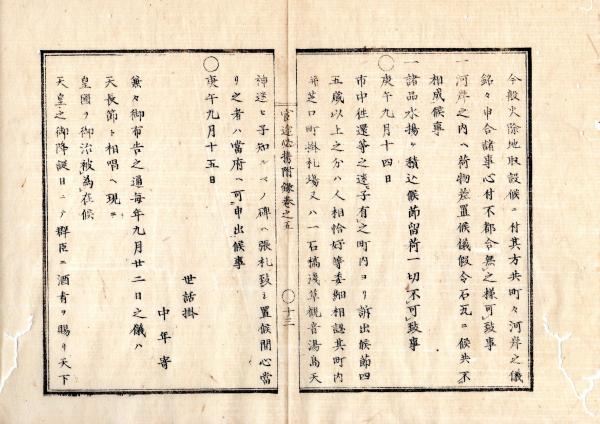 今般火除地取設候ニ付其方共町々河岸之儀
銘々申合諸事心付不都合無之樣可致事
一河岸之内ヘ荷物差置候儀假令石瓦ニ候共不
相成候事
一諸品水揚ケ積込候節留荷一切不可致事
〇庚午九月十四日
市中往還等之迷子有之町内ヨリ訴出候節四
五歳以上之分ハ人相恰好等委細相認其町内
并芝口町掛札場又ハ一石橋淺草觀音湯島天
官途必携附錄卷之五
〇十三
神迷ヒ子知ルベノ碑ヘ張札致シ置候間心當
リ之者ハ當府ヘ可申出候事
〇庚午九月十五日
世話掛
中年寄
兼々御布告之通每年九月廿二日之儀ハ
天長節ト相唱ヘ現ニ
皇國ヲ御治被爲在候
天皇之御降誕日ニテ群臣ニ酒肴ヲ賜リ天下